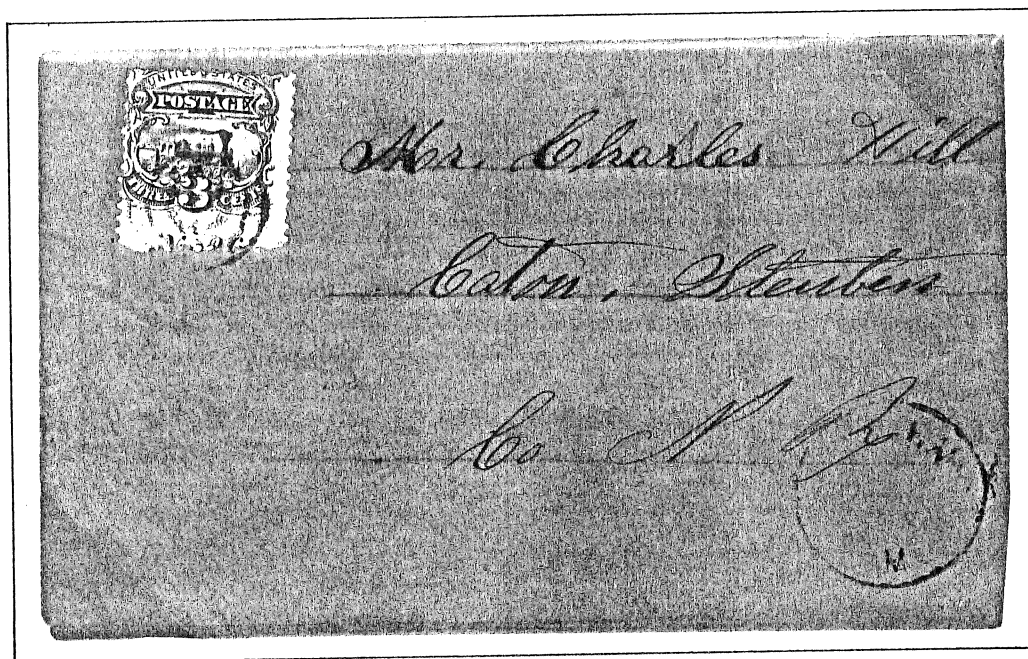 UNITED STATES
POSTAGE
THREE 3 CENTS
Mr. Charles Hill
Caton, Steuben
Co N Y
M